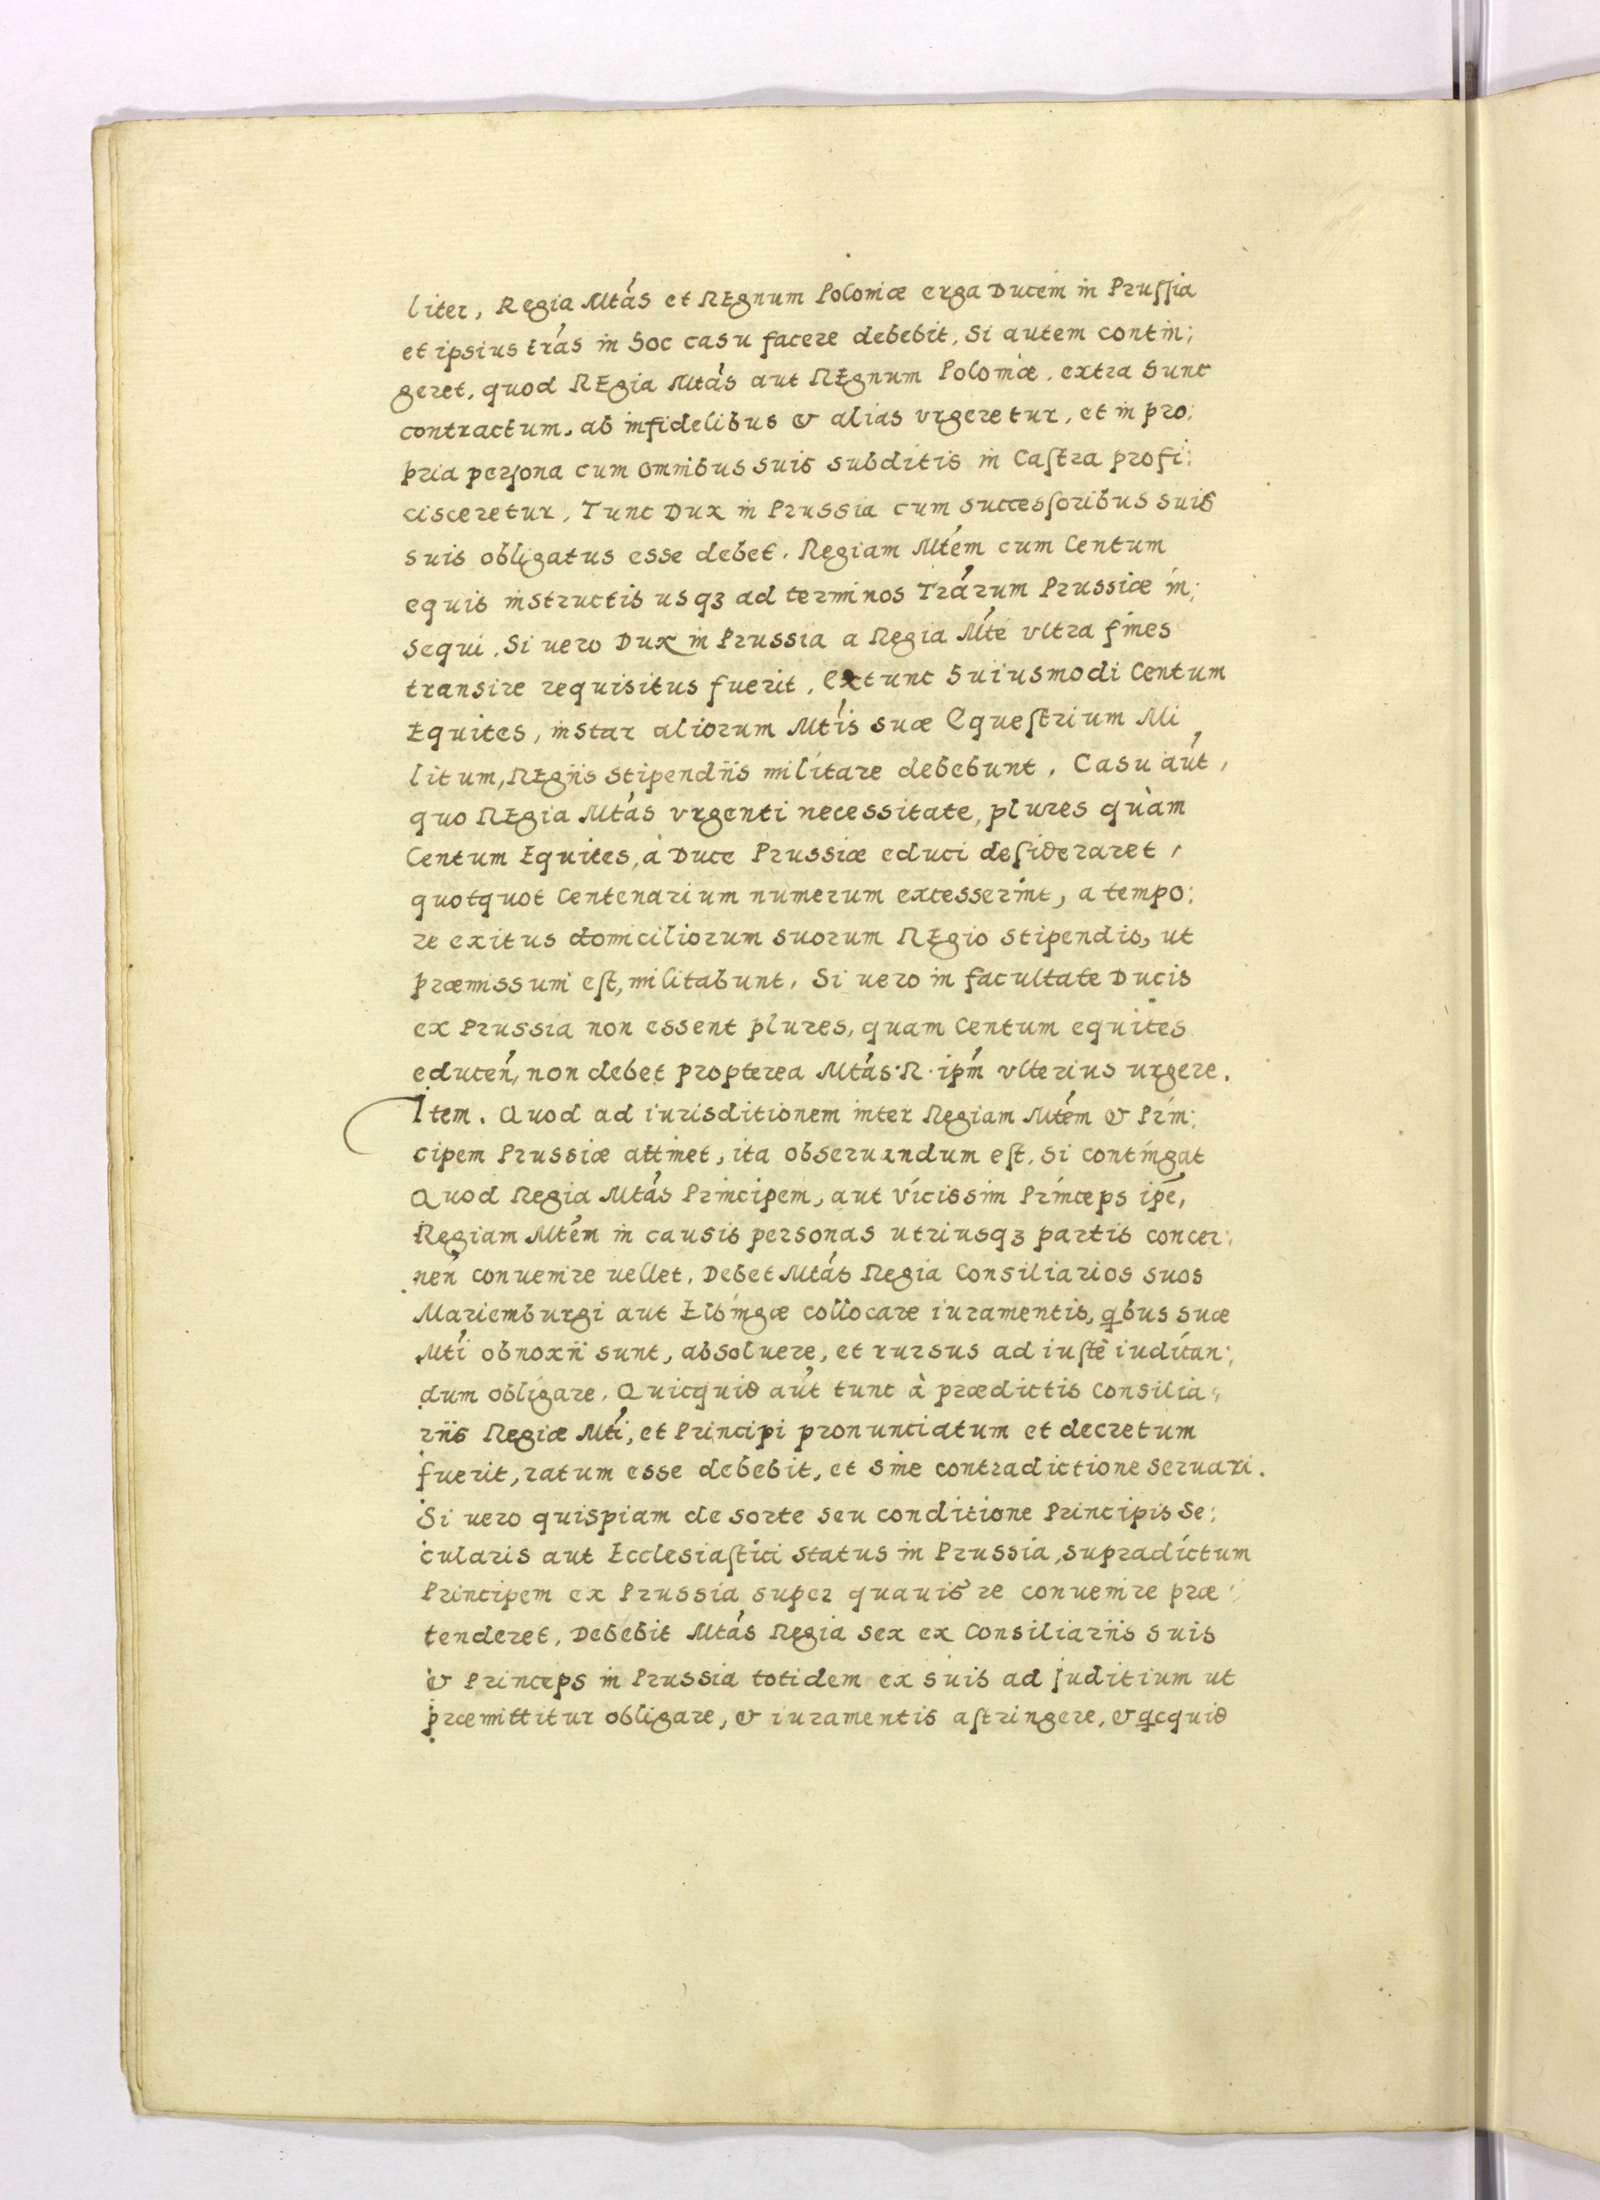 liter, Regia Mtás et REgnum Poloniæ erga Ducem in Prussia
et ipsius trás in hoc casu facere debebit, Si autem contin:
geret, quod REgia Mtás aut REgnum Poloniæ, extra hunc
contractum, ab infidelibus & alias vrgeretur, et in pro:
pria persona cum omnibus suis subditis in Castra profi:
cisceretur, Tunc Dux in Prussia cum successoribus suis
suis obligatus esse debet, Regiam Mtém cum Centum
equis instructis usqꝫ ad terminos Trárum Prussiæ in:
sequi, Si uero Dux in Prussia a Regia Mté vltra fines
transire requisitus fuerit, Extunc huiusmodi Centum
Equites, instar aliorum Mtís suæ Equestrium Mi
litum, REgijs stipendijs militare debebunt, Casu aút,
quo REgia Mtás vrgenti necessitate, plures quàm
Centum Equites, à Duce Prussiæ educi desideraret,
quotquot Centenarium numerum excesserint, a tempo:
re exitus domiciliorum suorum REgio stipendio, ut
præmissum est, militabunt, Si uero in facultate Ducis
ex Prussia non essent plures, quam Centum equites
educeń, non debet propterea Mtás R. ipḿ vlterius urgere.
Item. Quod ad iurisditionem inter Regiam Mtém & Prin:
cipem Prussiæ attinet, ita obseruandum est, Si contingat
Quod Regia Mtás Principem, aut vicissim Princeps ipé,
Regiam Mtém in causis personas utriusqꝫ partis concer:
neń conuenire uellet, Debet Mtás Regia Consiliarios suos
Mariemburgi aut Elbingæ collocare iuramentis, qbus suæ
Mtí obnoxij sunt, absoluere, et rursus ad iustè iudican:
dum obligare, Quicquid aút tunc à prædictis Consilia:
rijs Regiæ Mtí, et Principi pronunciatum et decretum
fuerit, ratum esse debebit, et sine contradictione seruari.
Si uero quispiam de sorte seu conditione Principis Se:
cularis aut Ecclesiastici status in Prussia, supradictum
Principem ex Prussia super quauis re conuenire præ:
tenderet, Debebit Mtás Regia sex ex Consiliarijs suis
& Princeps in Prussia totidem ex suis ad juditium ut
præmittitur obligare, & iuramentis astringere, & qcquid